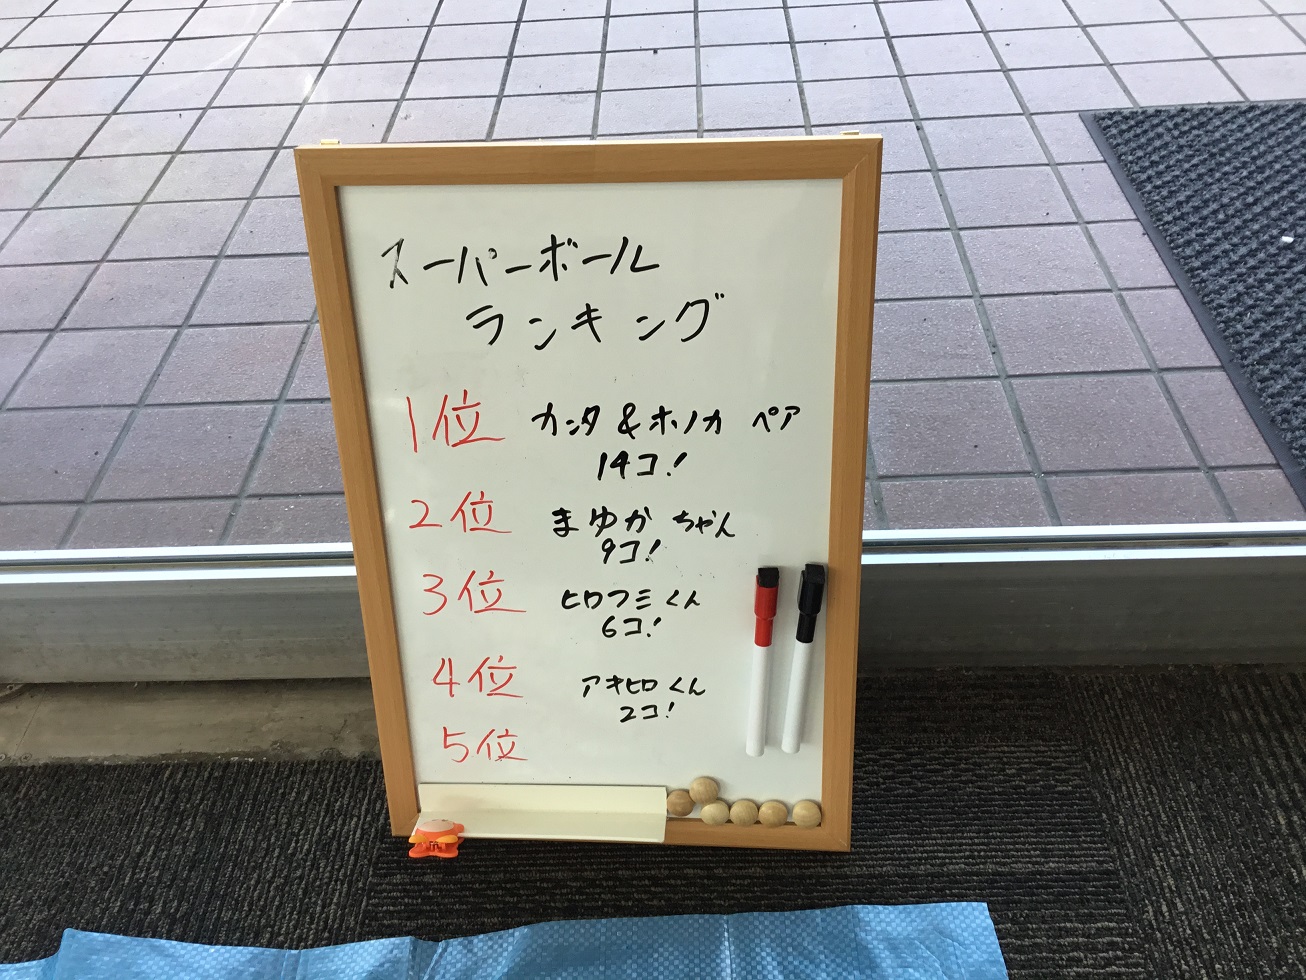 スーパーボール
ランキング
1位 カンタ & ホノカ ペア
14コ!
2位 まゆか ちゃん
9コ!
3位 ヒロフミくん
6コ!
4位 アキヒロくん
2コ!
5位